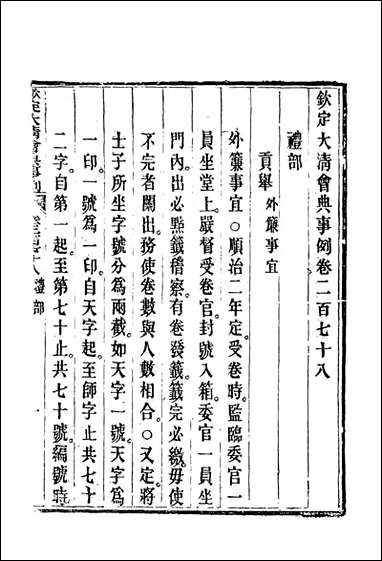 欽定大清會典事例卷二百七十八
禮部
貢舉 外簾事宜
外簾事宜○順治二年定。受卷時。監臨委官一
員坐堂上。嚴督受卷官。封號入箱。委官一員坐
門內。出必點籤稽察。有卷發籤。籤完必繳。毋使
不完者闌出。務使卷數與人數相合。○又定。將
士子所坐字號分為兩截。如天字一號。天字為
一印。一號為一印。自天字起。至師字止。共七十
二字。自第一起。至第七十止。共七十號。編號時
欽定大清會典事例 禮部